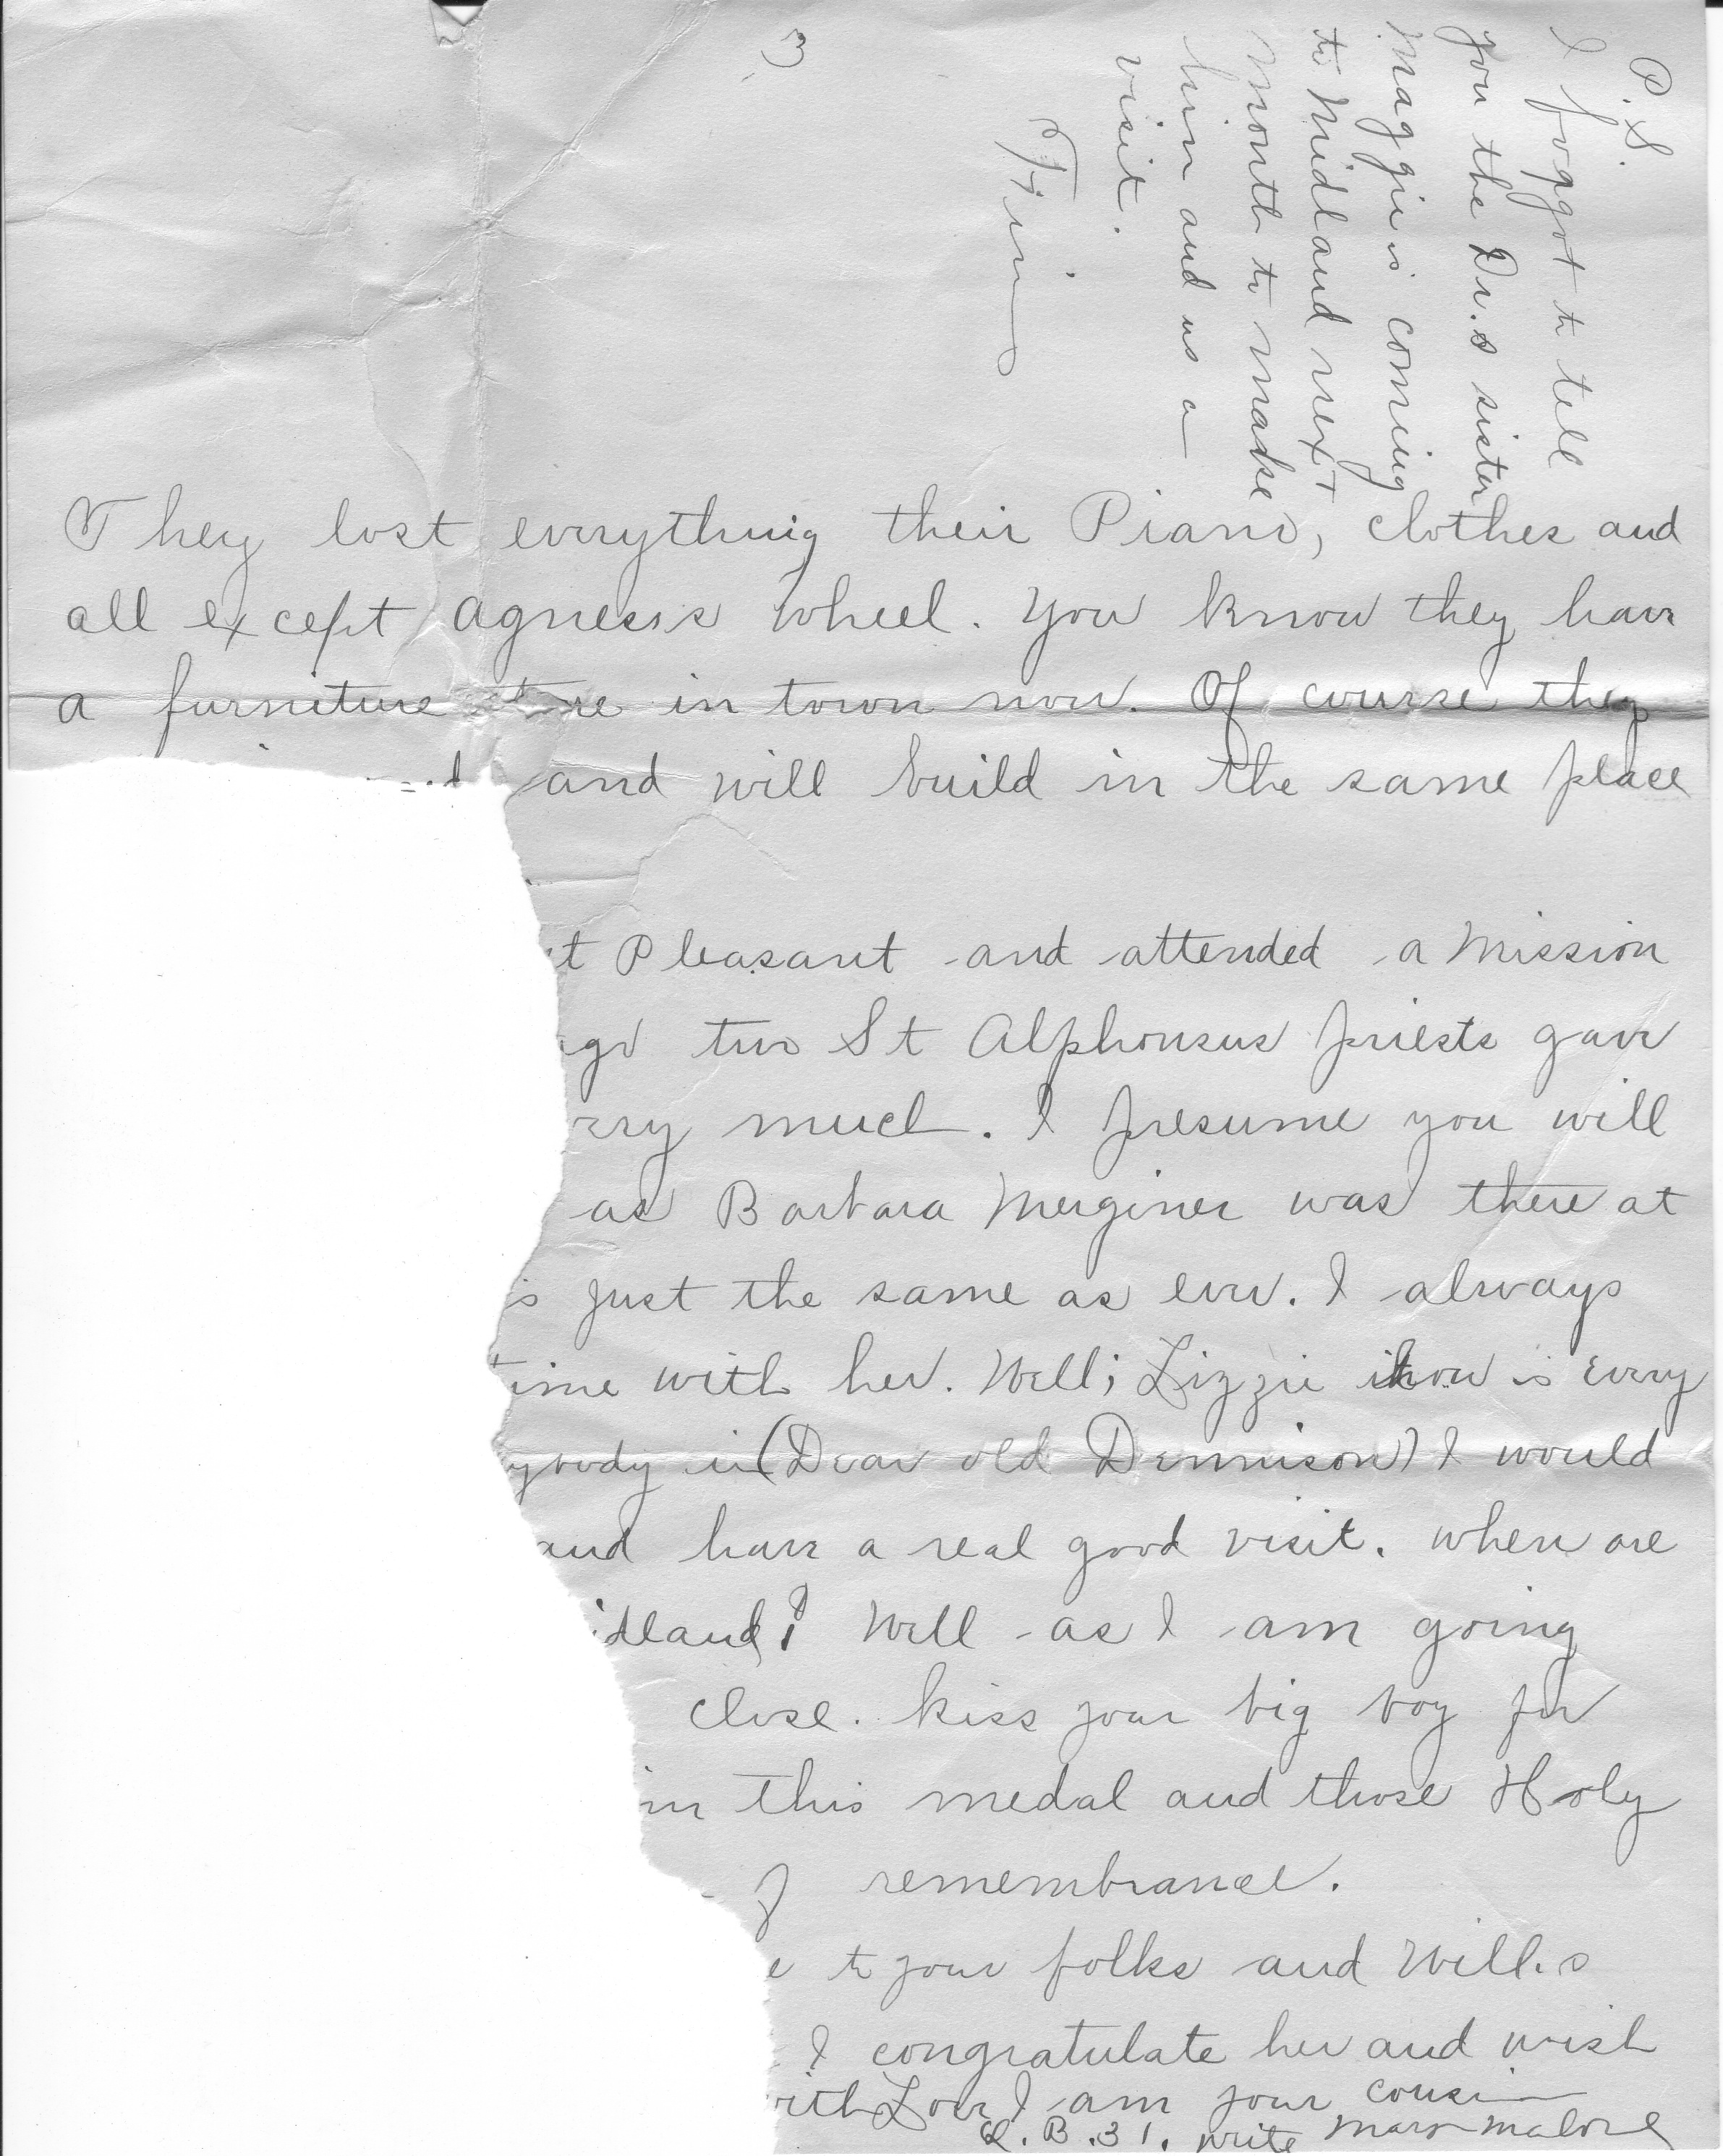 3
They lost everything their Piano, clothes and
all except Agneses wheel. You know they have
a furniture in town now. Of course they
and will build in the same place
Pleasant and attended a Mission
two St Alphonsus priests gave
much. I presume you will
as Barbara Merginer was there at
just the same as ever. I always
time with her. Well; Lizzie how is every
in (Dear old Dennison) I would
and have a real good visit. when are
idland? Well as I am going
close. Kiss your big boy for
this medal and those Holy
remembrance.
to your folks and Will.s
I congratulate her and wish
ith Love I am your cousin
L. B. 31. write Mary Malone
P.S.
I forgot to tell
you the Dr.s sister
Maggie is coming
to Midland next
Month to make
him and us a
visit.